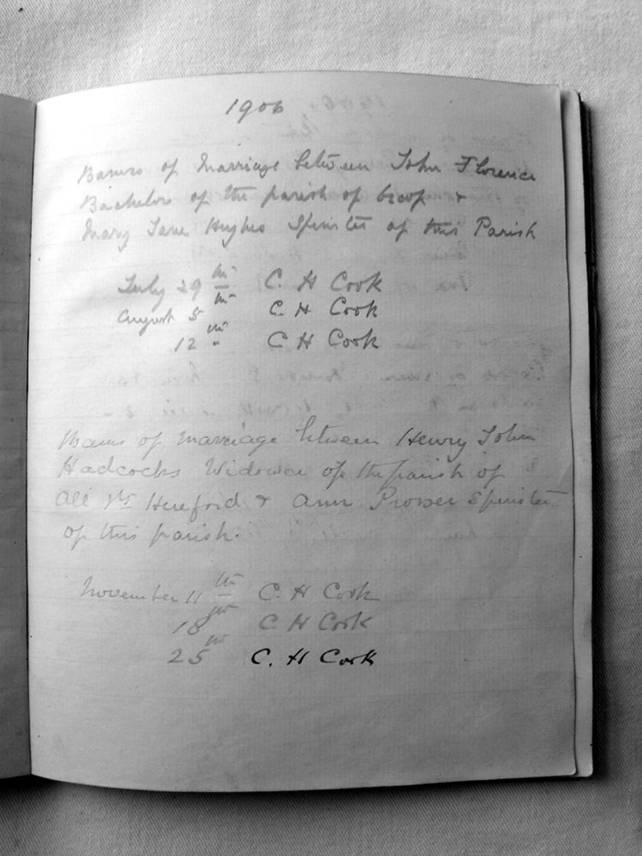 1906
Banns of Marriage between John Florence
Bachelor of the parish of &
Mary Jane Hughes Spinster of this Parish
July 29th C. H Cook
August 5th C H Cook
12 " C H Cook
Banns of Marriage between Henry John
Hadcocks Widower of the parish of
All Sts Hereford & Ann Prosser Spinster
of this parish.
November 11th C. H Cook
18th C. H Cook
25th C. H Cook